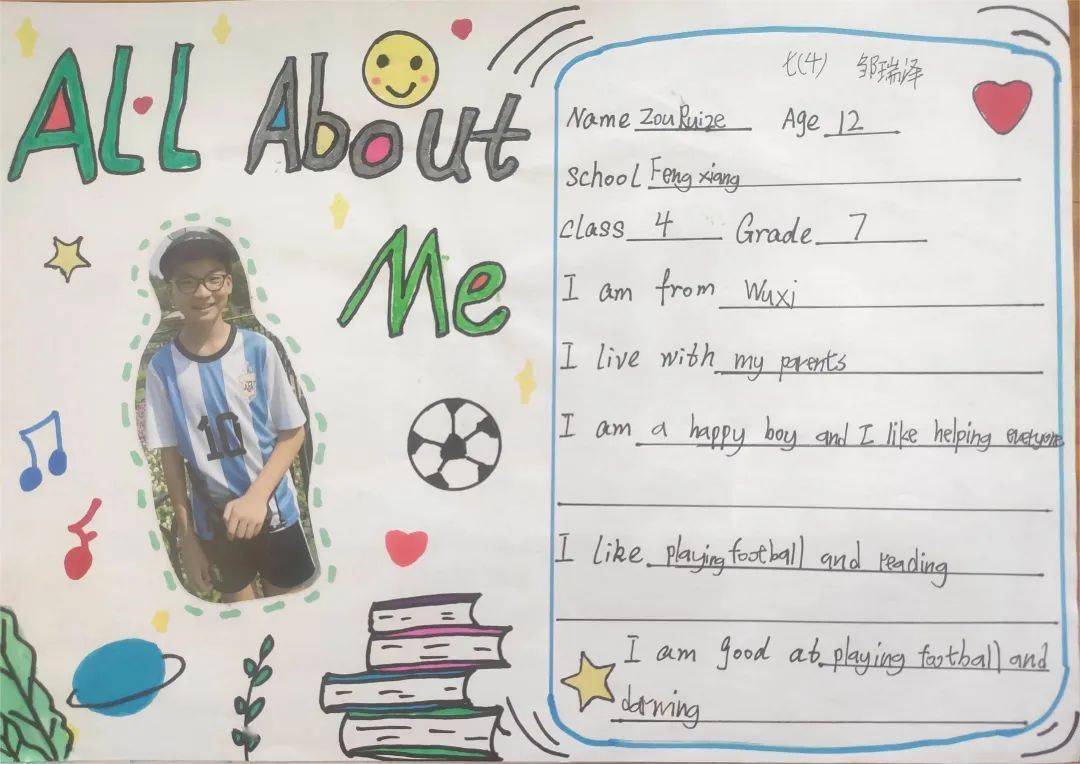 All About
Me
10
七(4) 邹瑞泽
Name Zou Ruize Age 12
School Fengxiang
class 4 Grade 7
I am from Wuxi
I live with my parents
I am a happy boy and I like helping everyone
I like playing football and reading
I am good at playing football and
darwing